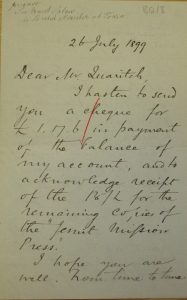 8018
26 July 1899
Dear Mr Quaritch,
I hasten to send
you a cheque for
£1.17.6 in payment
of the balance of
my account, and to
acknowledge receipt
of the 18/- for the
remaining copies of
the "Jesuit Mission
Press."
I hope you are
well. From time to time